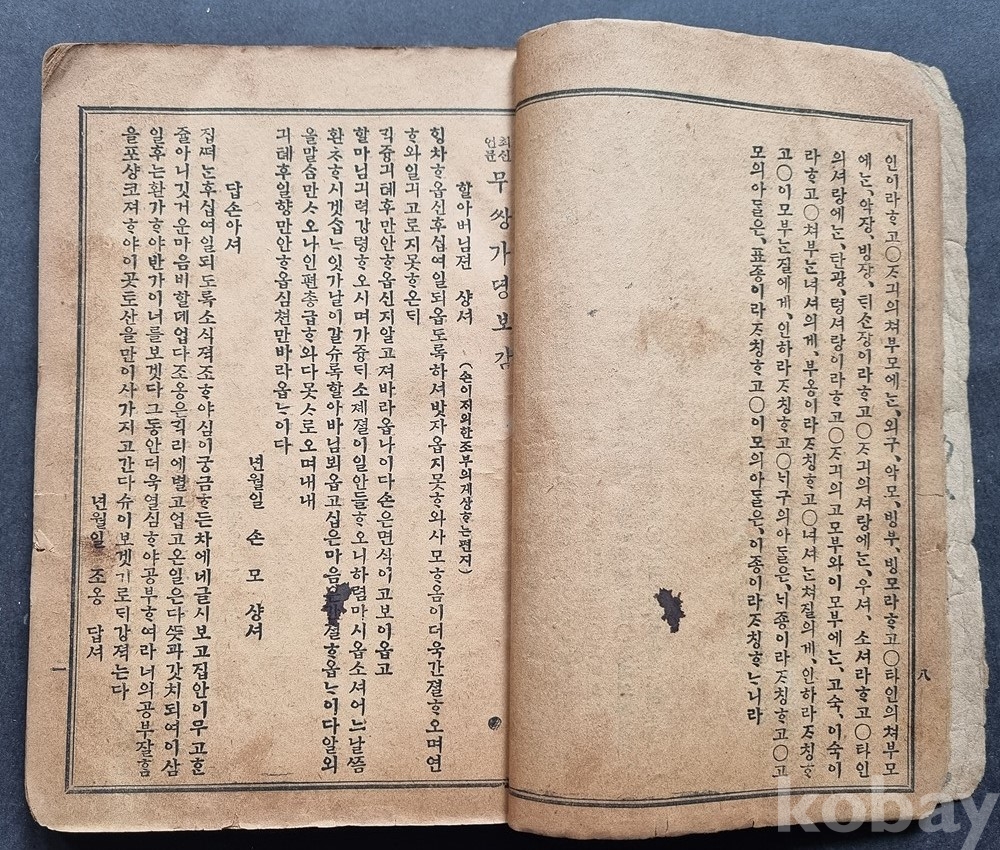 인이라ᄒᆞ고○ᄌᆞ긔의쳐부모에ᄂᆞᆫ、외구、악모、빙부、빙모라ᄒᆞ고○타인의쳐부모
에ᄂᆞᆫ、악장、빙장、ᄃᆡ소장이라ᄒᆞ고○ᄌᆞ긔의셔랑에ᄂᆞᆫ、우셔、소셔라ᄒᆞ고○타인
의셔랑에ᄂᆞᆫ、탄광、령셔랑이라ᄒᆞ고○ᄌᆞ긔의고모부와이모부에ᄂᆞᆫ、고숙、이숙이
라ᄒᆞ고○쳐부ᄂᆞᆫ녀셔의게、부옹이라ᄌᆞ칭ᄒᆞ고○녀셔ᄂᆞᆫ쳐질의게、인하라ᄌᆞ칭ᄒᆞ
고○이모부ᄂᆞᆫ질에게、인하라ᄌᆞ칭ᄒᆞ고○ᄂᆡ구의아ᄃᆞᆯ은、ᄂᆡ종이라ᄌᆞ칭ᄒᆞ고○고
모의아ᄃᆞᆯ은、표종이라ᄌᆞ칭ᄒᆞ고○이모의아ᄃᆞᆯ은、이종이라ᄌᆞ칭ᄒᆞᄂᆞ니라
八
최신
언문
무쌍가뎡보감
할아버님젼 샹셔 (손이저의한조부의게상ᄒᆞ는편지)
ᄒᆡᆼ차ᄒᆞ옵신후십여일되옵도록하셔밧자옵지못ᄒᆞ와사모ᄒᆞ옴이더욱간졀ᄒᆞ오며연
ᄒᆞ와일긔고로지못ᄒᆞ온ᄃᆡ
ᄀᆡᆨ즁긔톄후만안ᄒᆞ옵신지알고져바라옵나이다손은면식이고보이옵고
할마님긔력강령ᄒᆞ오시며가즁ᄃᆡ소졔졀이일안들ᄒᆞ오니하렴마시옵소셔어ᄂᆞ날ᄯᅳᆷ
환ᄎᆞᄒᆞ시겟ᄉᆞᆸᄂᆞ잇가날이갈슈록할아바님뵈옵고십은마음 졀ᄒᆞ옵ᄂᆞ이다알외
올말ᄉᆞᆷ만ᄉᆞ오나인편총급ᄒᆞ와다못ᄉᆞ로오며내내
긔톄후일향만안ᄒᆞ옵심쳔만바라옵ᄂᆞ이다
년월일 손 모 샹셔
답손아셔
집ᄯᅥᄂᆞᆫ후십여일되도록소식져조ᄒᆞ야심이궁금ᄒᆞ든차에네글시보고집안이무고ᄒᆞᆫ
줄아니깃거운마음비할데업다조옹은ᄀᆡᆨ리에별고업고온일은다ᄯᅳᆺ과갓치되여이삼
일후는환가ᄒᆞ야반가이너를보겟다그동안더욱열심ᄒᆞ야공부ᄒᆞ여라너의공부잘ᄒᆞᆷ
을포샹코져ᄒᆞ야이곳토산을만이사가지고간다슈이보겟기로ᄃᆡ강져는다
년월일 조옹 답셔
一
kobay